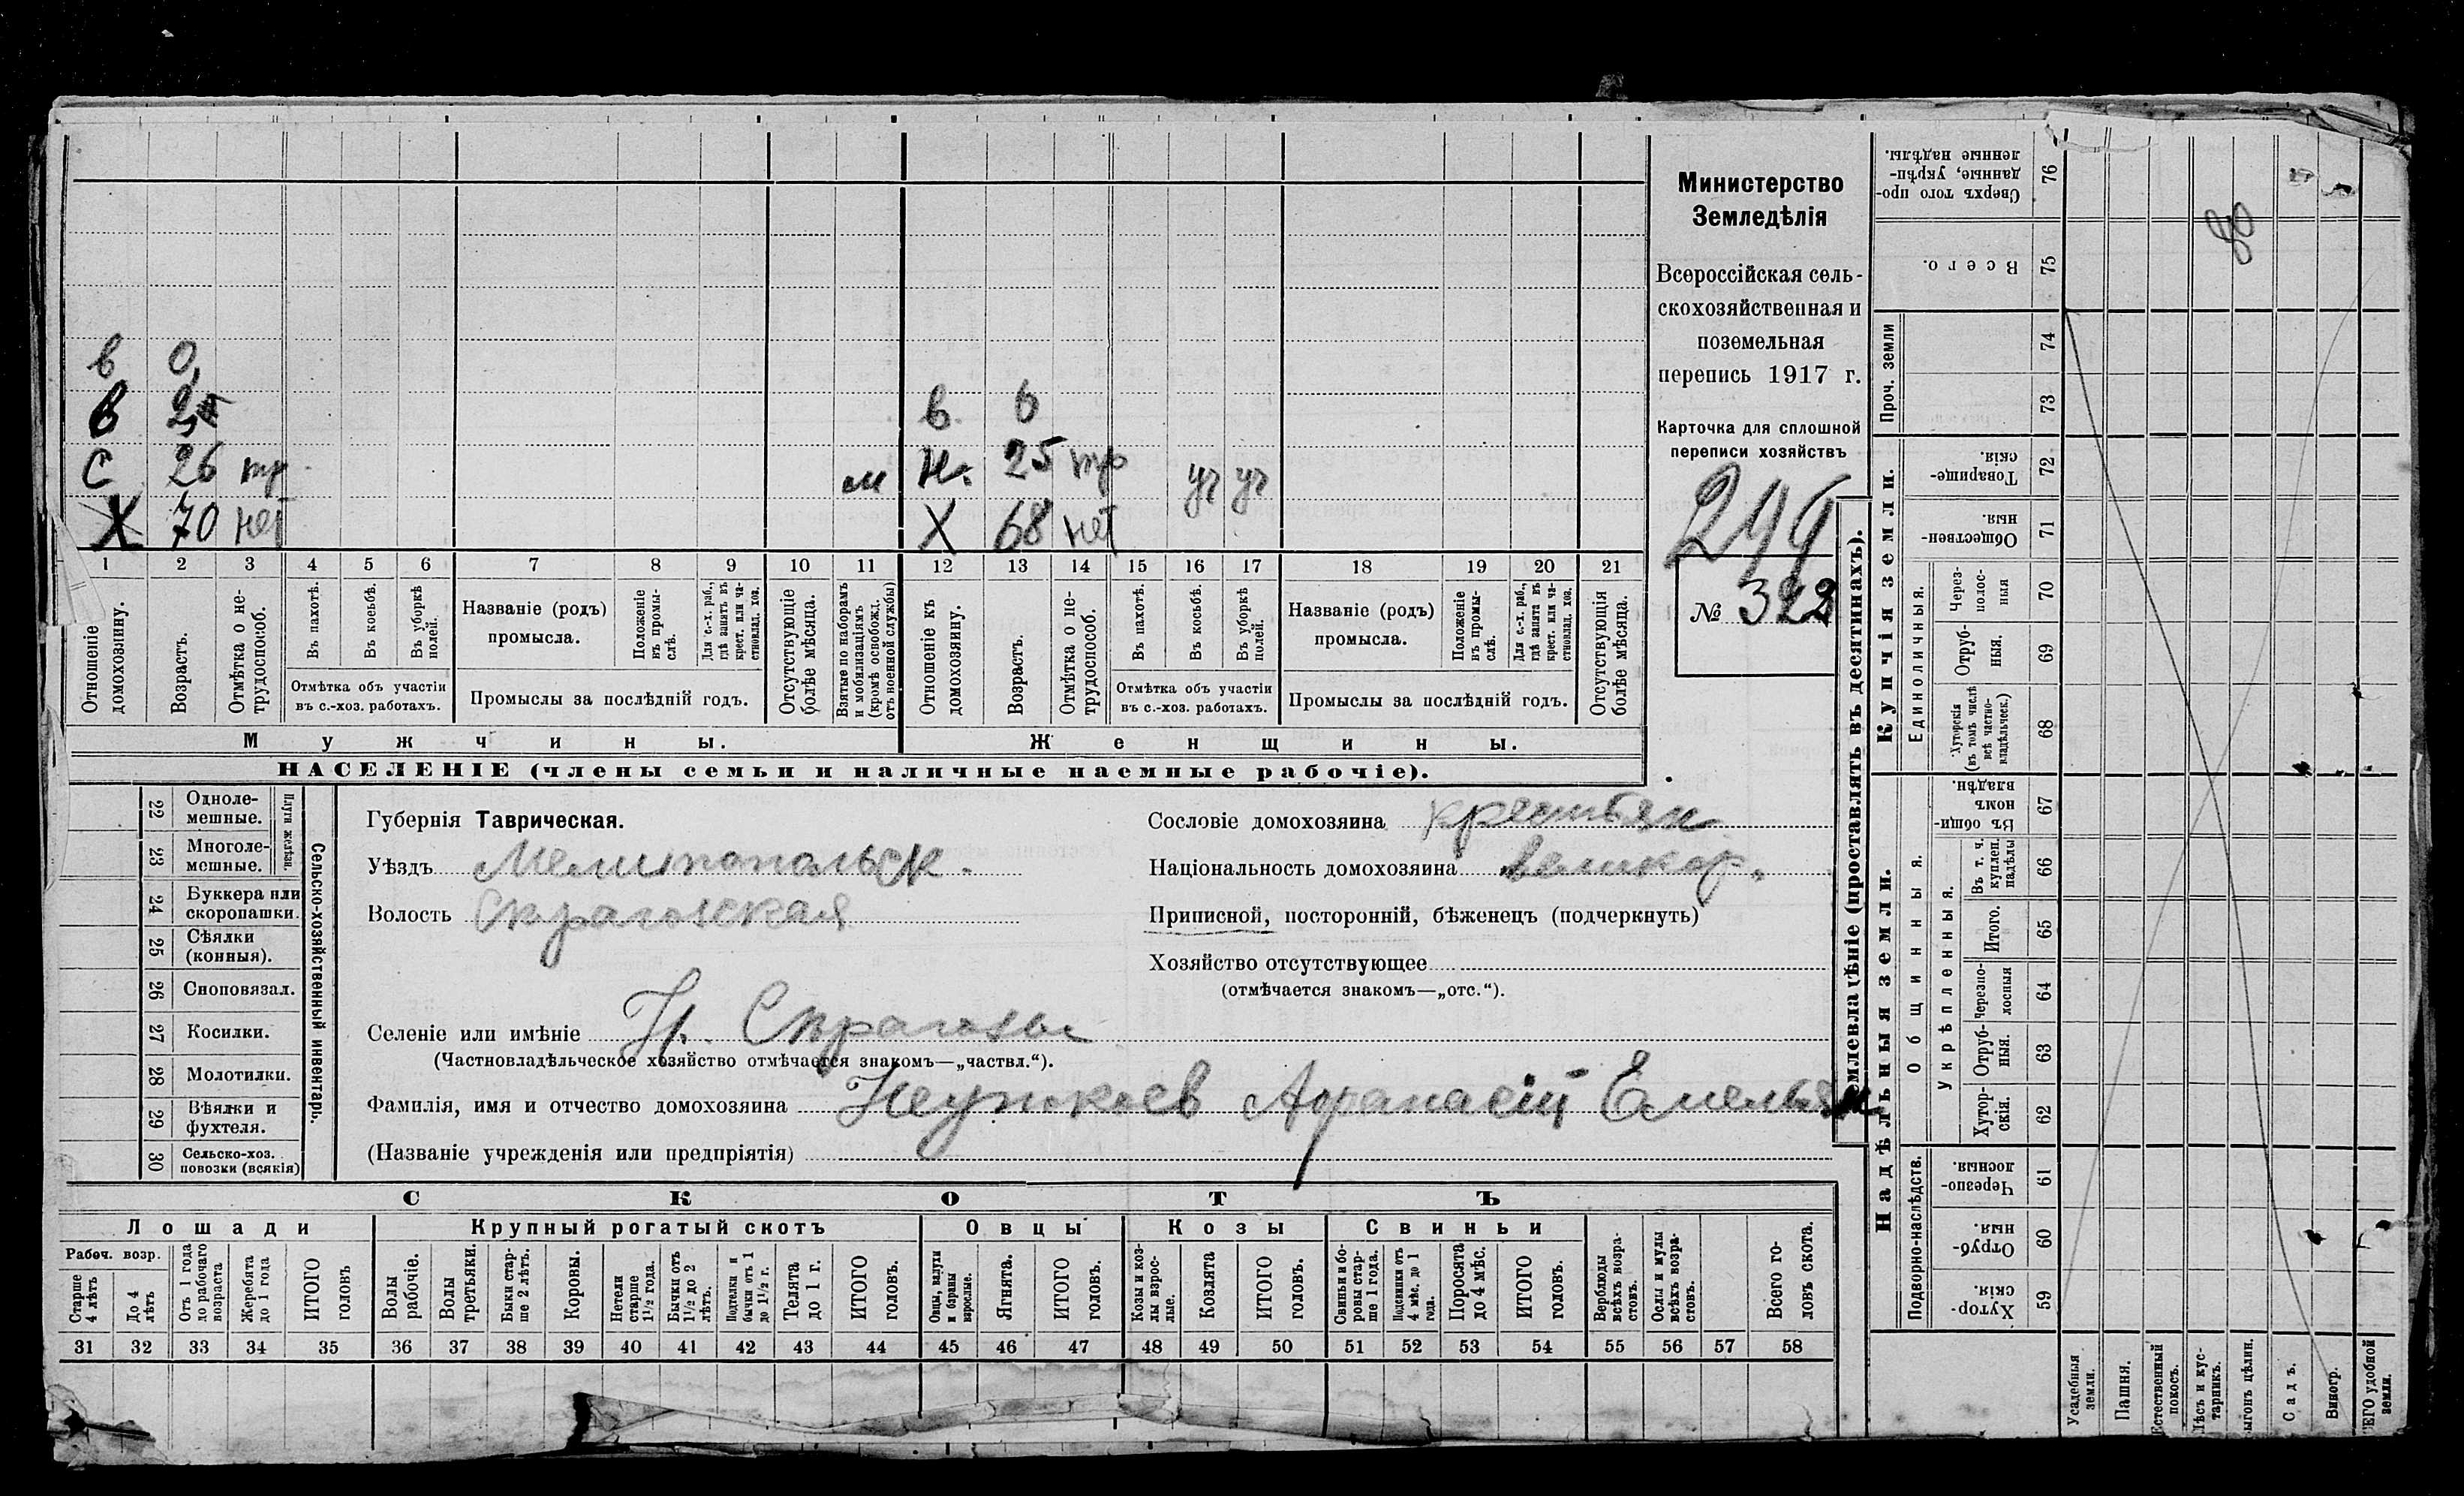 в 0
в 2
в 6
С 26 тр м Н. 25 тр уч уч
Х 70 нет Х 68 нет
1 2 3 4 5 6 7 8 9 10 11 12 13 14 15 16 17 18 19 20 21
Отношеніе домохозяину.
Возрастъ.
Отмѣтка о не-
трудоспособ.
Въ пахотѣ.
Въ косьбѣ.
Въ уборкѣ
полей.
Отмѣтка объ участіи
въ с.-хоз. работахъ.
Названіе (родъ)
промысла.
Положеніе
въ промы-
слѣ.
Для с.-х. раб.,
гдѣ занятъ въ
крест. или ча-
стновлад. хоз.
Промыслы за послѣдній годъ.
Отсутствующіе
болѣе мѣсяца.
Взятые по наборамъ
и мобилизаціямъ
(кромѣ освобожд.
отъ военной службы)
Отношеніе къ
домохозяину.
Возрастъ.
Отмѣтка о не-
трудоспособ.
Въ пахотѣ.
Въ косьбѣ.
Въ уборкѣ
полей.
Отмѣтка объ участіи
въ с.-хоз. работахъ.
Названіе (родъ)
промысла.
Положеніе
въ промы-
слѣ.
Для с.-х. раб.,
гдѣ занята въ
крест. или ча-
стновлад. хоз.
Промыслы за послѣдній годъ.
Отсутствующія
болѣе мѣсяца.
Мужчины. Женщины.
НАСЕЛЕНІЕ (члены семьи и наличные наемные рабочіе).
Министерство
Земледѣлія
Всероссійская сель-
скохозяйственная и
поземельная
перепись 1917 г.
Карточка для сплошной
переписи хозяйствъ
№ 322
22 Одноле-
мешные.
23 Многоле-
мешные.
Плуги желѣзн.
24 Буккера или
скоропашки.
25 Сѣялки
(конныя).
26 Сноповязал.
27 Косилки.
28 Молотилки.
29 Вѣялки и
фухтеля.
30 Сельско-хоз.
повозки (всякія)
Сельско-хозяйственный инвентарь.
Губернія Таврическая.
Уѣздъ Мелитопольск.
Волость
Селеніе или имѣніе Н.
(Частновладѣльческое хозяйство отмѣчается знакомъ—„частвл.“).
Фамилія, имя и отчество домохозяина Афанасій Емельян
(Названіе учрежденія или предпріятія)
Сословіе домохозяина крестьян
Національность домохозяина великор.
Приписной, посторонній, бѣженецъ (подчеркнуть)
Хозяйство отсутствующее
(отмѣчается знакомъ—„отс.“).
СКОТЪ
Лошади Крупный рогатый скотъ Овцы Козы Свиньи
Рабоч. возр.
Старше
4 лѣтъ
До 4
лѣтъ
Отъ 1 года
до рабочаго
возраста
Жеребята
до 1 года
ИТОГО
головъ
Волы
рабочіе.
Волы
третьяки.
Быки стар-
ше 2 лѣтъ.
Коровы.
Нетели
старше
1½ года.
Бычки отъ
1½ до 2
лѣтъ.
Подтелки и
бычки отъ 1
до 1½ г.
Телята
до 1 г.
ИТОГО
головъ.
Овцы, валухи
и бараны
взрослые.
Ягнята.
ИТОГО
головъ.
Козы и коз-
лы взрос-
лые.
Козлята
ИТОГО
головъ.
Свиньи и бо-
ровы стар-
ше 1 года.
Подсвинки отъ
4 мѣс. до 1
года.
Поросята
до 4 мѣс.
ИТОГО
головъ.
Верблюды
всѣхъ возра-
стовъ.
Ослы и мулы
всѣхъ возра-
стовъ.
Всего го-
ловъ скота.
31 32 33 34 35 36 37 38 39 40 41 42 43 44 45 46 47 48 49 50 51 52 53 54 55 56 57 58
емлевладѣніе (проставлять въ десятинахъ).
Надѣльныя земли. Купчія земли. Проч. земли
Подворно-наслѣдств.
Общинныя.
Укрѣпленныя.
Единоличныя.
Сверхъ того про-
данные, укрѣп-
ленные надѣлы. 76
Всего. 75
74
73
Товарище-
скія. 72
Обществен-
ныя. 71
Через-
полос-
ныя 70
Отруб-
ныя. 69
Хуторскія
(въ томъ числѣ
всѣ частно-
владѣльческ.) 68
Въ общин-
номъ
владѣн. 67
Въ т. ч.
куплен.
надѣлы 66
Итого. 65
Черезпо-
лосныя 64
Отруб-
ныя. 63
Хутор-
скія. 62
Черезпо-
лосныя. 61
Отруб-
ныя. 60
Хутор-
скія. 59
Усадебныя
земли.
Пашня.
Естественный
покосъ.
Лѣсъ и кус-
тарникъ.
ыгонъ цѣлин.
Садъ.
Виногр.
ЕГО удобной
земли.